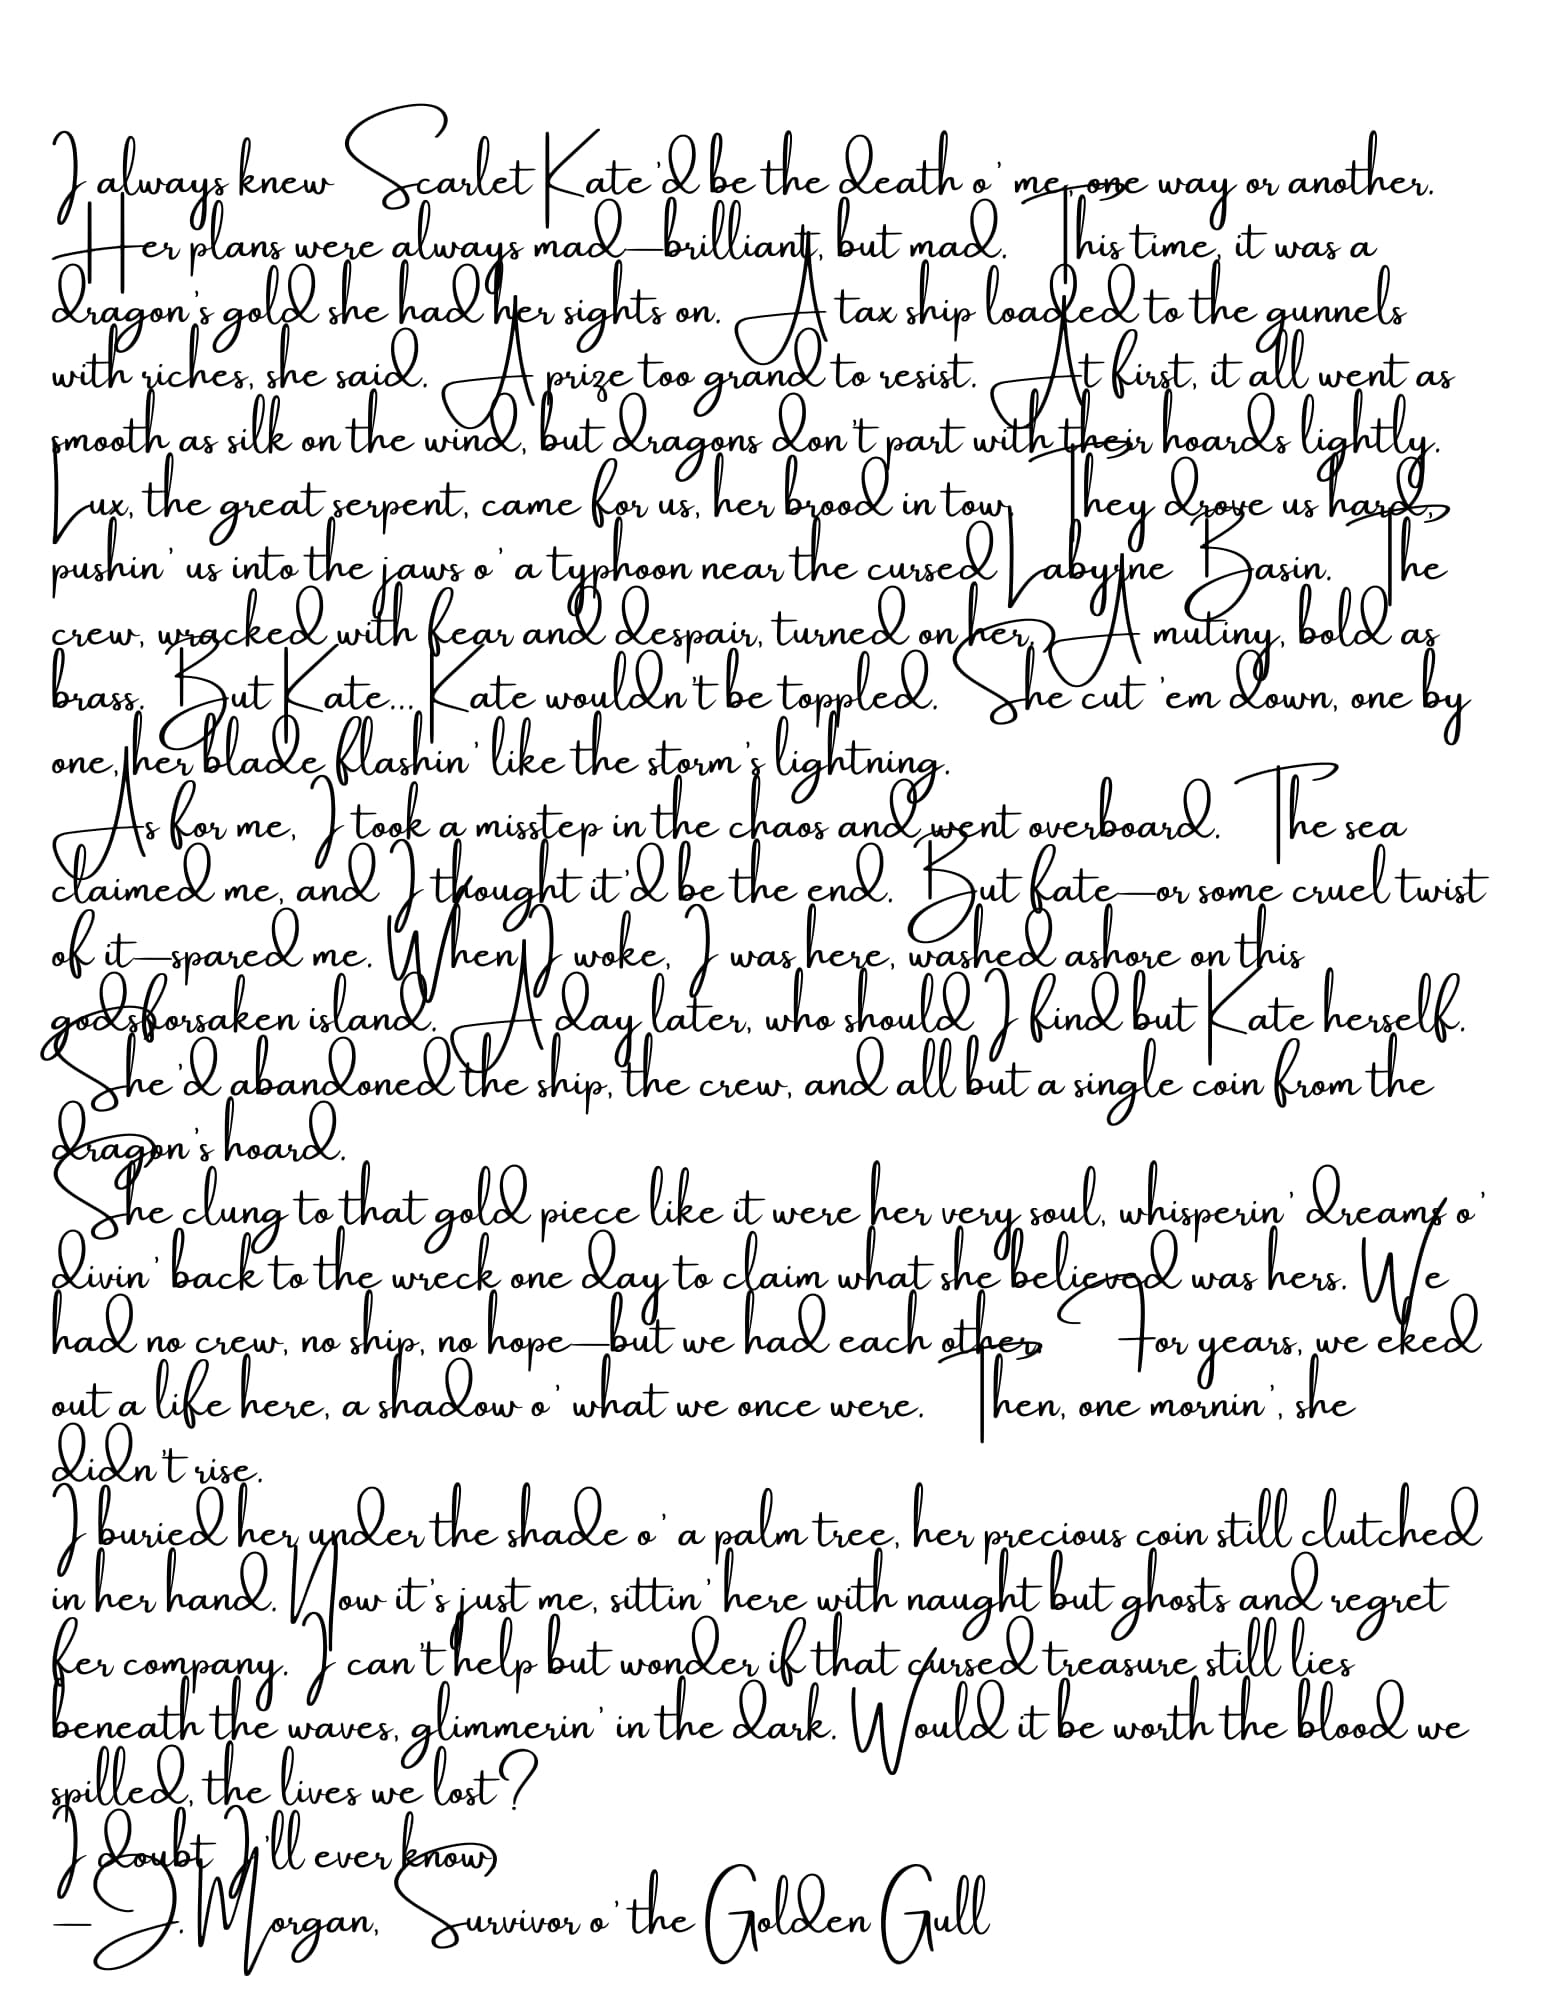 I always knew Scarlet Kate'd be the death o' me, one way or another.
Her plans were always mad—brilliant, but mad. This time, it was a
dragon's gold she had her sights on. A tax ship loaded to the gunnels
with riches, she said. A prize too grand to resist. At first, it all went as
smooth as silk on the wind, but dragons don't part with their hoards lightly.
Lux, the great serpent, came for us, her brood in tow. They drove us hard,
pushin' us into the jaws o' a typhoon near the cursed Labyrne Basin. The
crew, wracked with fear and despair, turned on her. A mutiny, bold as
brass. But Kate... Kate wouldn't be toppled. She cut 'em down, one by
one, her blade flashin' like the storm's lightning.
As for me, I took a misstep in the chaos and went overboard. The sea
claimed me, and I thought it'd be the end. But fate—or some cruel twist
of it—spared me. When I woke, I was here, washed ashore on this
godsforsaken island. A day later, who should I find but Kate herself.
She'd abandoned the ship, the crew, and all but a single coin from the
dragon's hoard.
She clung to that gold piece like it were her very soul, whisperin' dreams o'
divin' back to the wreck one day to claim what she believed was hers. We
had no crew, no ship, no hope—but we had each other. For years, we eked
out a life here, a shadow o' what we once were. Then, one mornin', she
didn't rise.
I buried her under the shade o' a palm tree, her precious coin still clutched
in her hand. Now it's just me, sittin' here with naught but ghosts and regret
fer company. I can't help but wonder if that cursed treasure still lies
beneath the waves, glimmerin' in the dark. Would it be worth the blood we
spilled, the lives we lost?
I doubt I'll ever know.
—J. Morgan, Survivor o' the Golden Gull